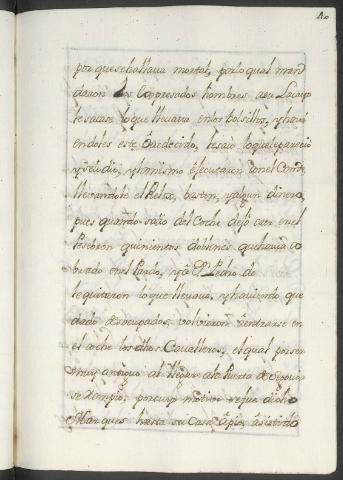 por que se hallaua mortal, por lo qual man
daron los expresados hombres a su Lacayo
le sacase lo que lleuaua en los bolsillos, y hauí
endoles este obedecido, le saco lo que le pareció
y se lo dio, y lo mismo executaron con el Conde
lleuandole el Relox, baston, y algun dinero,
pues quando salio del Coche dejo caer en el
Pesebron quinientos doblones que hauia co
brado en el Pardo, y a Dn Pedro de
le quitaron lo que lleuaua, y hauiendo que
dado desocupados, voluieron a entrarse en
el coche los dhos Caualleros, el qual por ser
muy antiguo al llegar a la Puerta de Segouia
se rompio, por cuyo motiuo se fue dicho
Marques hasta su Casa a pie, asistido